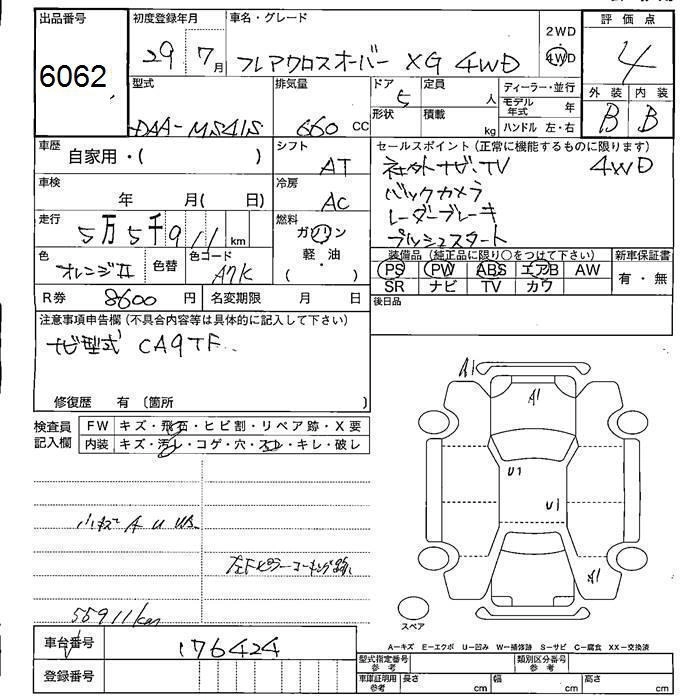 出品番号
6062
初度登録年月
29年7月
車名・グレード
フレアクロスオーバー XG 4WD
2WD
4WD
評価点
4
外装 内装
B B
型式
DAA-MS41S
排気量
660 cc
ドア 5
定員
人
形状
積載
kg
ディーラー・並行
モデル年式
年
ハンドル 左・右
車歴
自家用・( )
シフト
AT
車検
年 月( 日)
冷房
AC
走行
5万5千911 km
燃料
ガソリン
軽・油
( )
色
オレンジII
色替
色コード
A7K
R券 8600 円
名変期限 月 日
セールスポイント(正常に機能するものに限ります)
社外ナビ.TV 4WD
バックカメラ
レーダーブレーキ
プッシュスタート
装備品(純正品に限り〇をつけて下さい)
PS PW ABS エアB AW
SR ナビ TV カワ
新車保証書
有・無
後日品
注意事項申告欄(不具合内容等は具体的に記入して下さい)
ナビ型式 CA9TF
修復歴 有(箇所 )
検査員記入欄
FW キズ・飛石・ヒビ割・リペア跡・X要
内装 キズ・汚レ・コゲ・穴・スレ・キレ・破レ
小キズ A U
左Fピラーコーキング跡
55911km
A1
A1
U1
U1
A1
スペア
A-キズ E-エクボ U-凹み W-補修跡 S-サビ C-腐食 XX-交換済
車台番号
176424
登録番号
型式指定番号参考
類別区分番号参考
車庫証明用参考
長さ cm
幅 cm
高さ cm